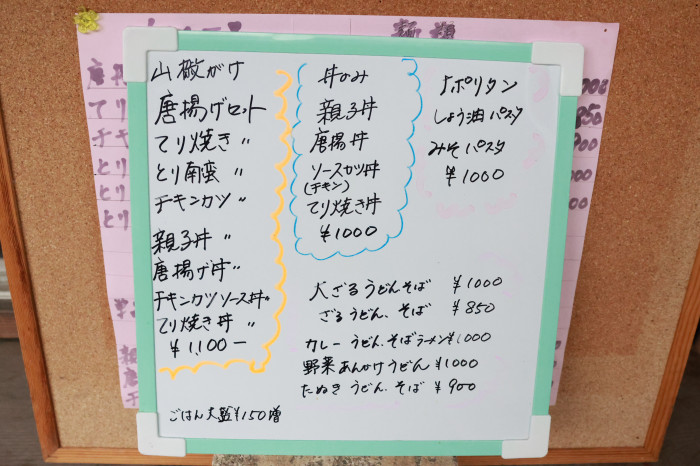 山散がけ
唐揚げセット
てり焼き 〃
とり南蛮 〃
チキンカツ 〃
親子丼 〃
唐揚げ丼 〃
チキンカツソース丼 〃
てり焼き丼 〃
¥1,100ー
ごはん大盛¥150増
丼のみ
親子丼
唐揚丼
ソースカツ丼
(チキン)
てり焼き丼
¥1000
ナポリタン
しょう油パスタ
みそパスタ
¥1000
大ざるうどんそば ¥1000
ざるうどん、そば ¥850
カレーうどん、そばラーメン¥1000
野菜あんかけうどん¥1000
たぬきうどん、そば ¥900
麺類
唐
てり
チキ
とり
とり
親
唐
チキ
850
900